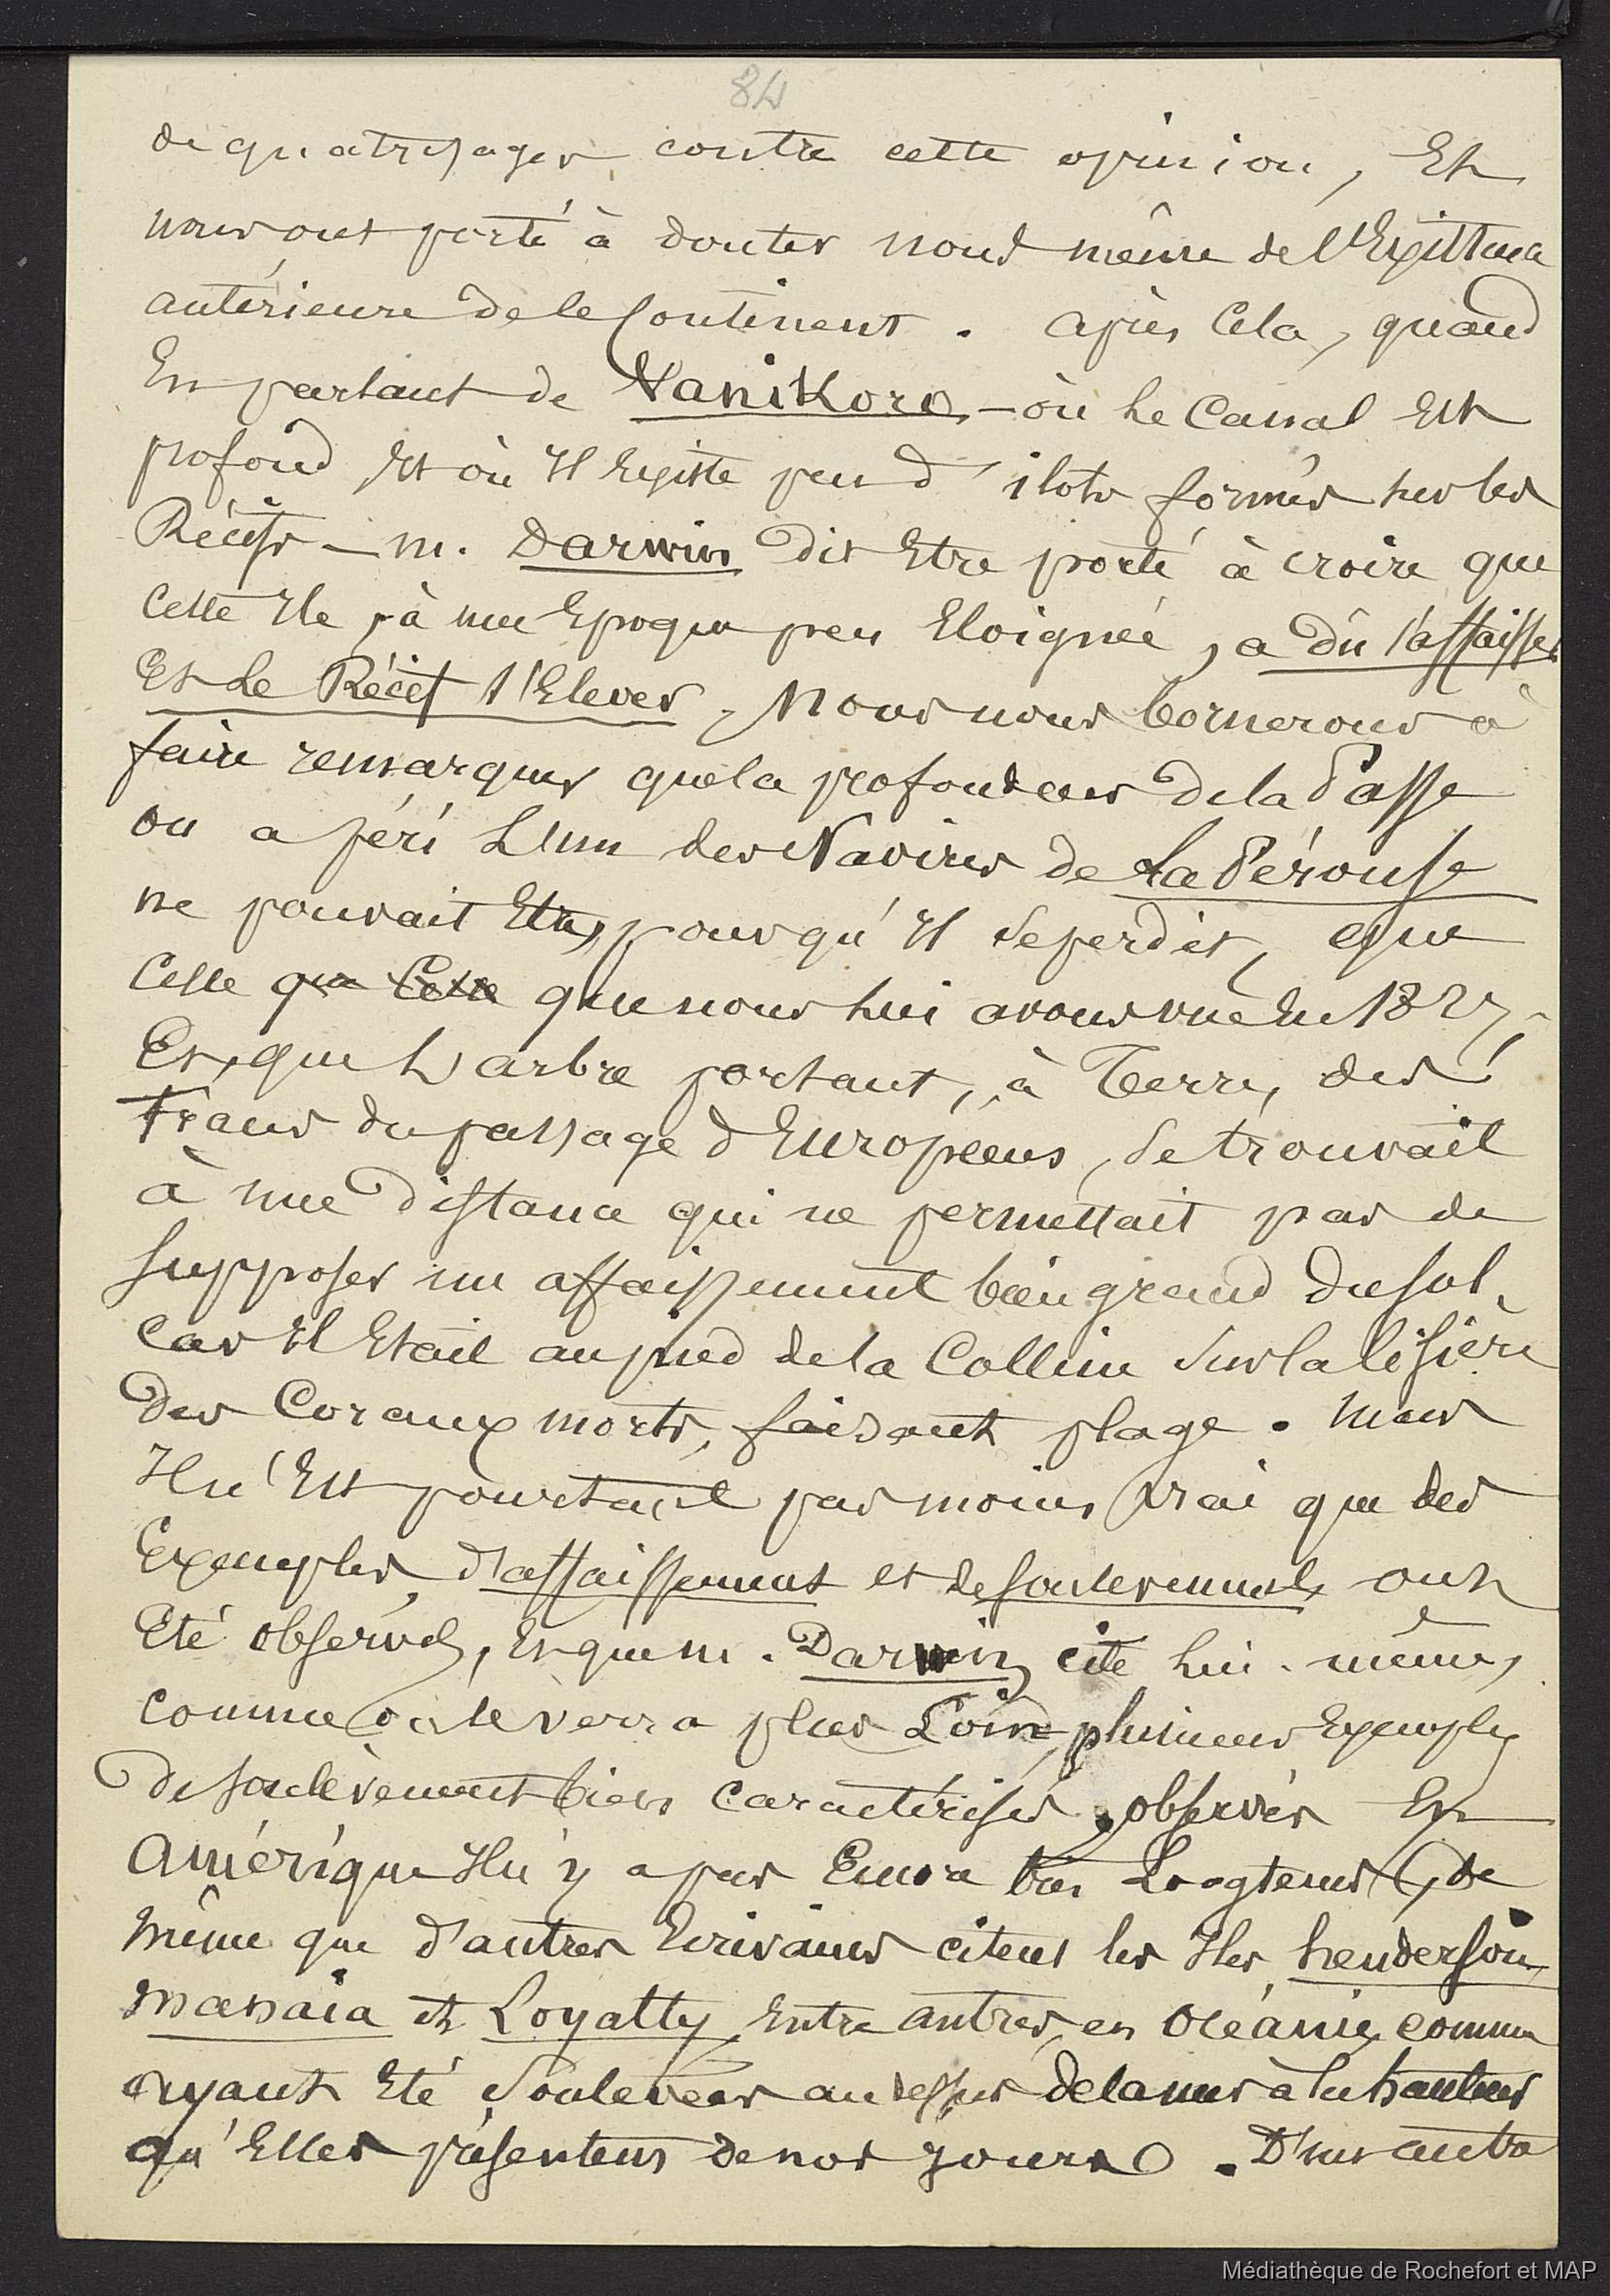 84
de quatrefages contre cette opinion, Et
nous ont porté à douter nous même de l'Existence
antérieure de le Continent. après Cela, quand
En parlant de Vanikoro, - où le Canal Est
profond Et où Il Existe peu d'ilots formés sur les
Récifs - m. Darwin dit Etre porté à croire que
cette Ile, à une Epoque peu Eloignée, a dû s'affaisser
Et Le Récif s'Elever. Nous nous bornerons à
faire remarquer que la profondeur de la Passe
ou a péri L'Un des Navires de La Pérouse
ne pouvait Etre, pour qu'Il se perdit, que
Celle que Cette que nous lui avons vue En 1827;
Et, que L'arbre portant, à Terre, des
traces du passage d'Européens, se trouvait
à une distance qui ne permettait pas de
supposer un affaissement bien grand du sol,
Car Il Etait au pied de la Colline sur la lisière
des Coraux morts, faisant plage. mais
Il n'Est pourtant pas moins vrai que des
Exemples, d'affaissement et de soulevements ont
Eté observés, Et que m. Darwin cite lui-même,
comme on le verra plus Loin, plusieurs Exemples
de soulèvement bien caractérisés, observés En
Amérique Il n'y a pas Encore bien Longtems, de
même que d'autres Ecrivains citent les Iles henderson,
manaia et Loyalty, Entre autres, en Océanie, comme
ayant Eté Soulevées au dessus de la mer à la hauteur
qu'Elles présentent de nos jours. D'un autre
Médiathèque de Rochefort et MAP